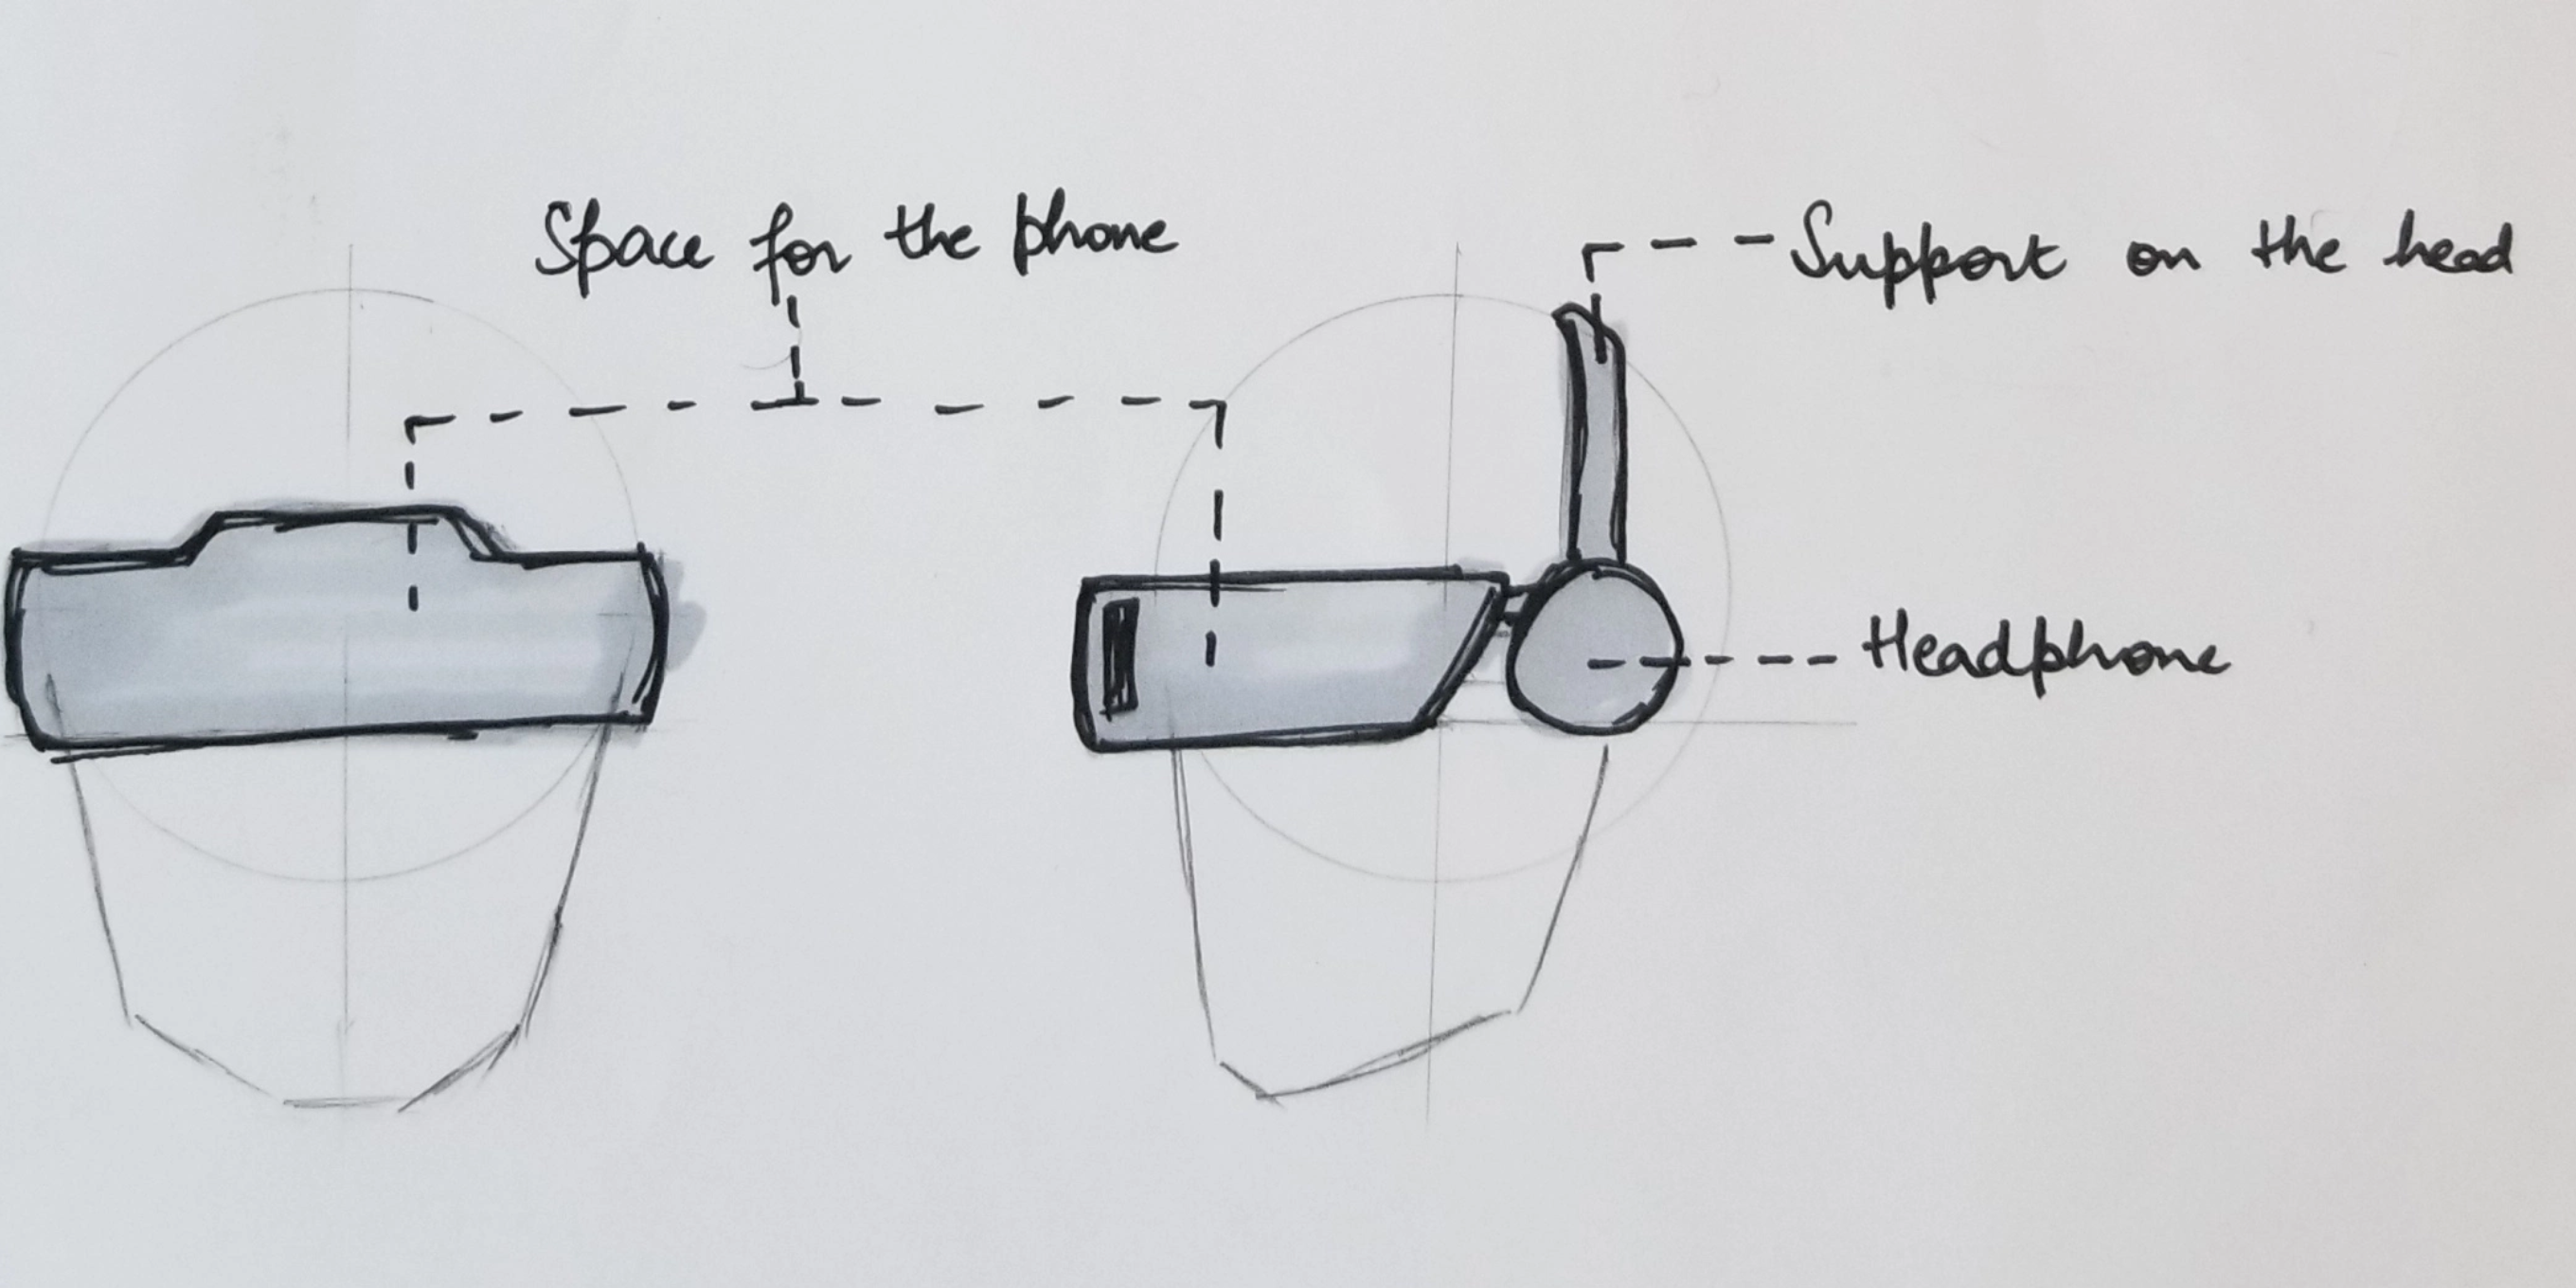 Space for the phone
Support on the head
Headphone